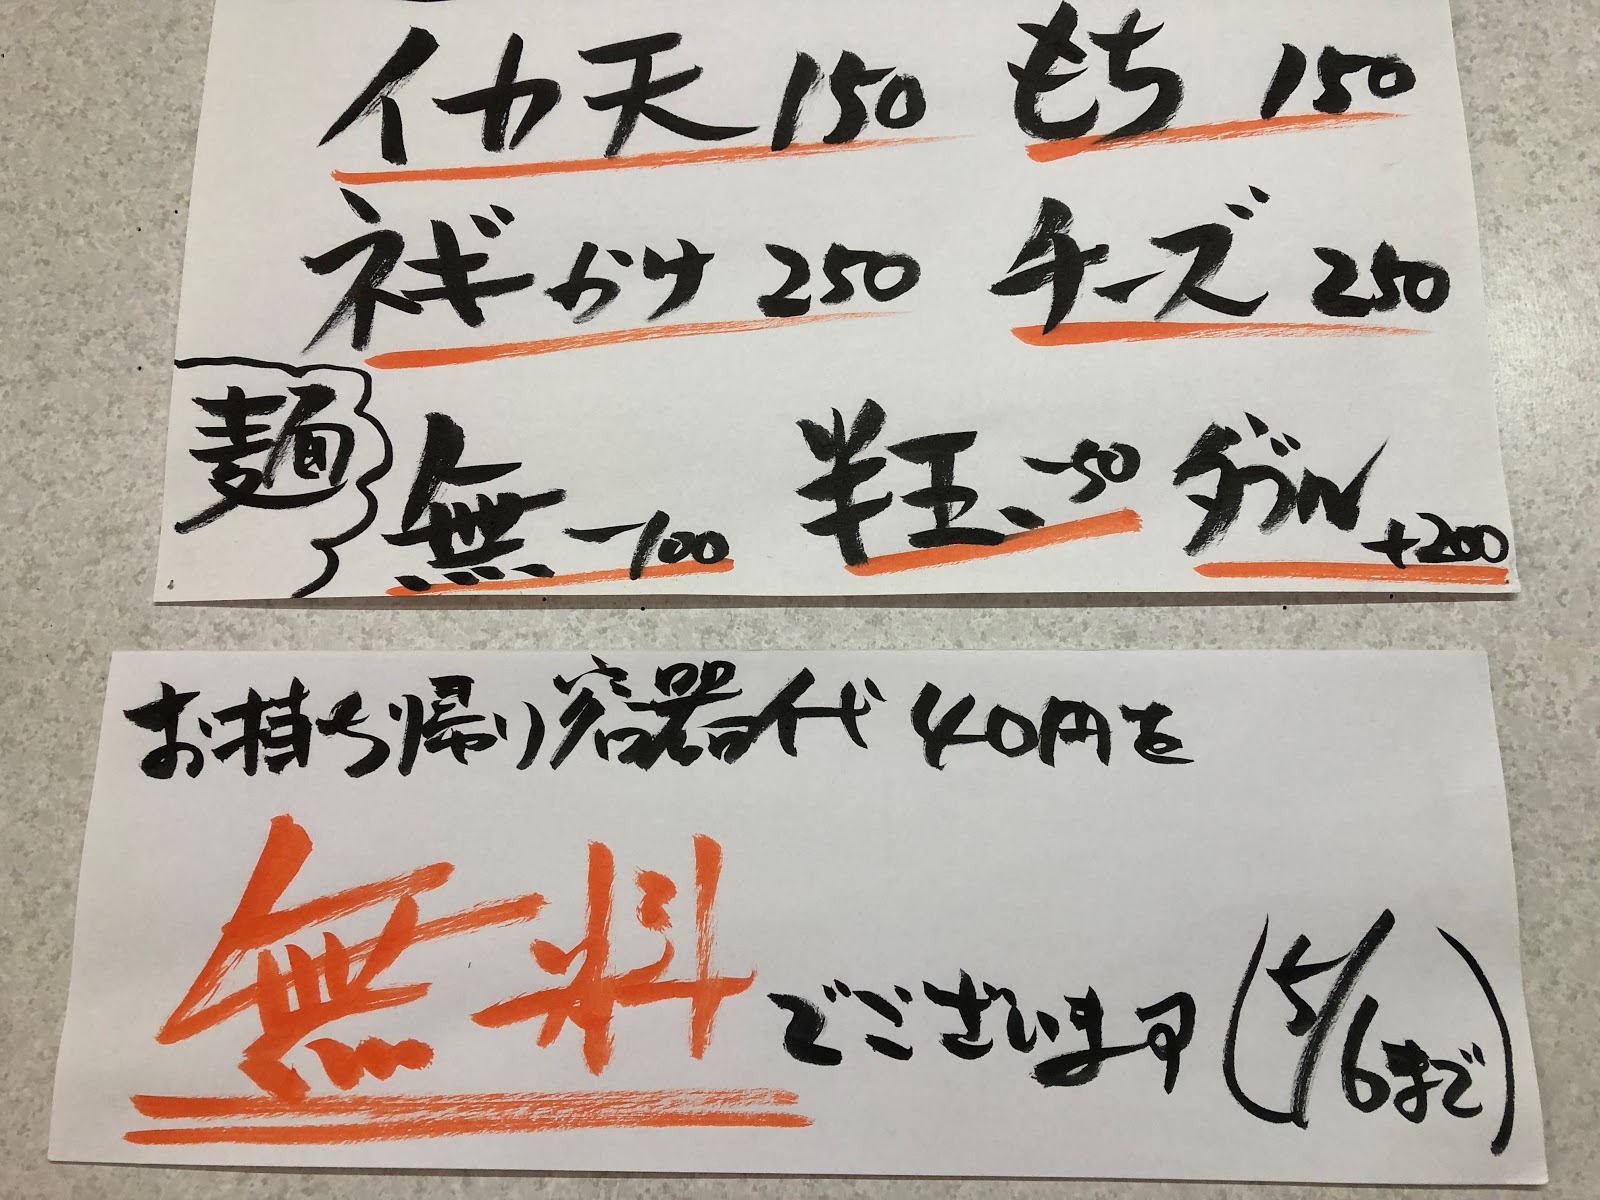 イカ天 150 もち 150
ネギかけ 250 チーズ 250
麺 無 -100 半玉 -50 ダブル +200
お持ち帰り容器代 40円を
無料でございます (5/6まで)